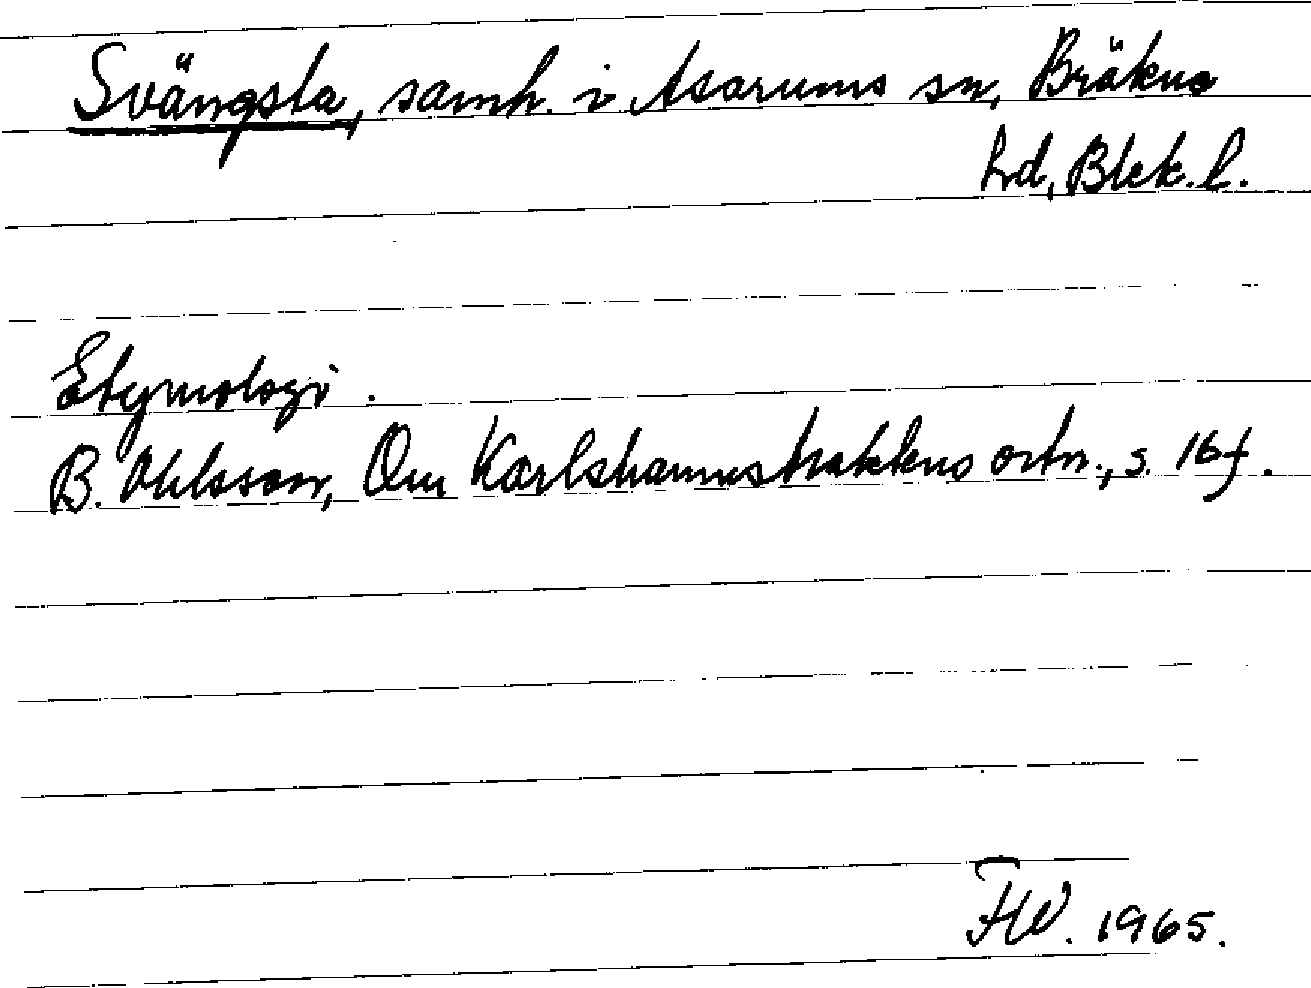 Svängsta, samh. i Asarums sn, Bräkne
hd, Blek. l.
Etymologi.
B. Ohlsson, Om Karlshamnstraktens ortn., s. 16 f.
FW. 1965.